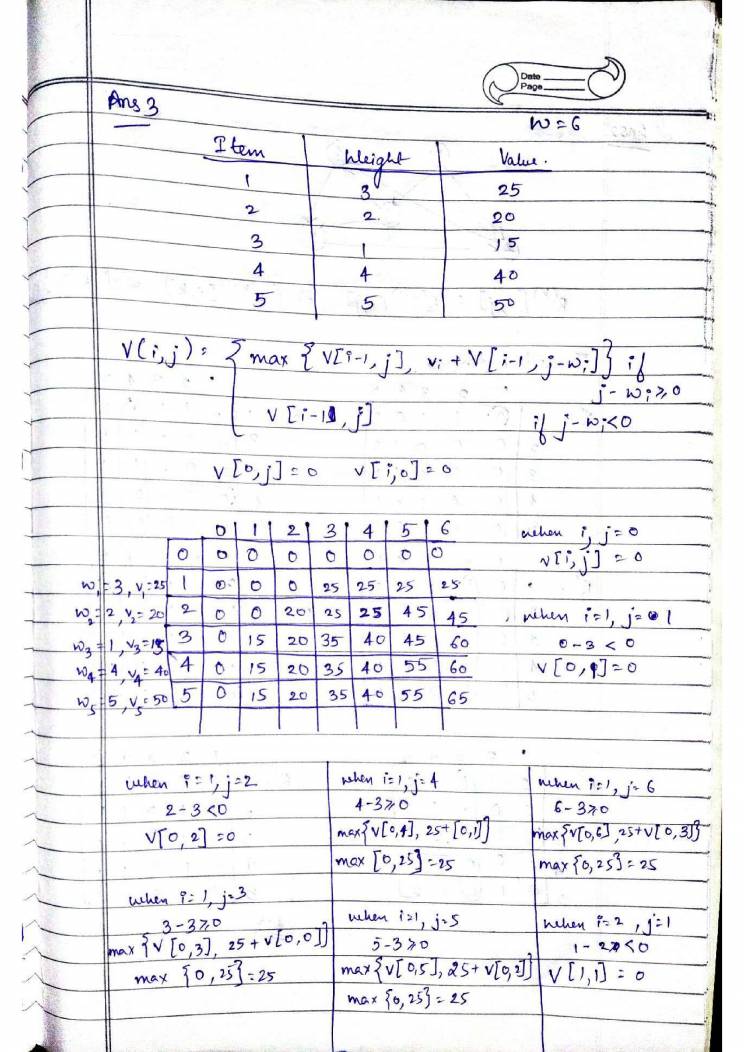 Date
Page
Ans 3
W=6
Item Weight Value.
1 3 25
2 2 20
3 1 15
4 4 40
5 5 50
V(i,j) = { max { V[i-1, j], vi + V[i-1, j-wi]} if
j-wi≥0
V[i-1, j] if j-wi<0
V[0,j]=0 V[i,0]=0
0 1 2 3 4 5 6
0 0 0 0 0 0 0 0
w1=3, v1=25 1 0 0 0 25 25 25 25
w2=2, v2=20 2 0 0 20 25 25 45 45
w3=1, v3=15 3 0 15 20 35 40 45 60
w4=4, v4=40 4 0 15 20 35 40 55 60
w5=5, v5=50 5 0 15 20 35 40 55 65
when i, j=0
v[i,j] = 0
when i=1, j=1
0-3 < 0
V[0,1]=0
when i=1, j=2
2-3<0
V[0,2]=0
when i=1, j=3
3-3≥0
max{V[0,3], 25+V[0,0]}
max {0,25}=25
when i=1, j=4
4-3≥0
max{V[0,4], 25+[0,1]}
max [0,25]=25
when i=1, j=5
5-3≥0
max{V[0,5], 25+V[0,2]}
max {0,25}=25
when i=1, j=6
6-3≥0
max{V[0,6], 25+V[0,3]}
max{0,25}=25
when i=2, j=1
1-2<0
V[1,1]=0